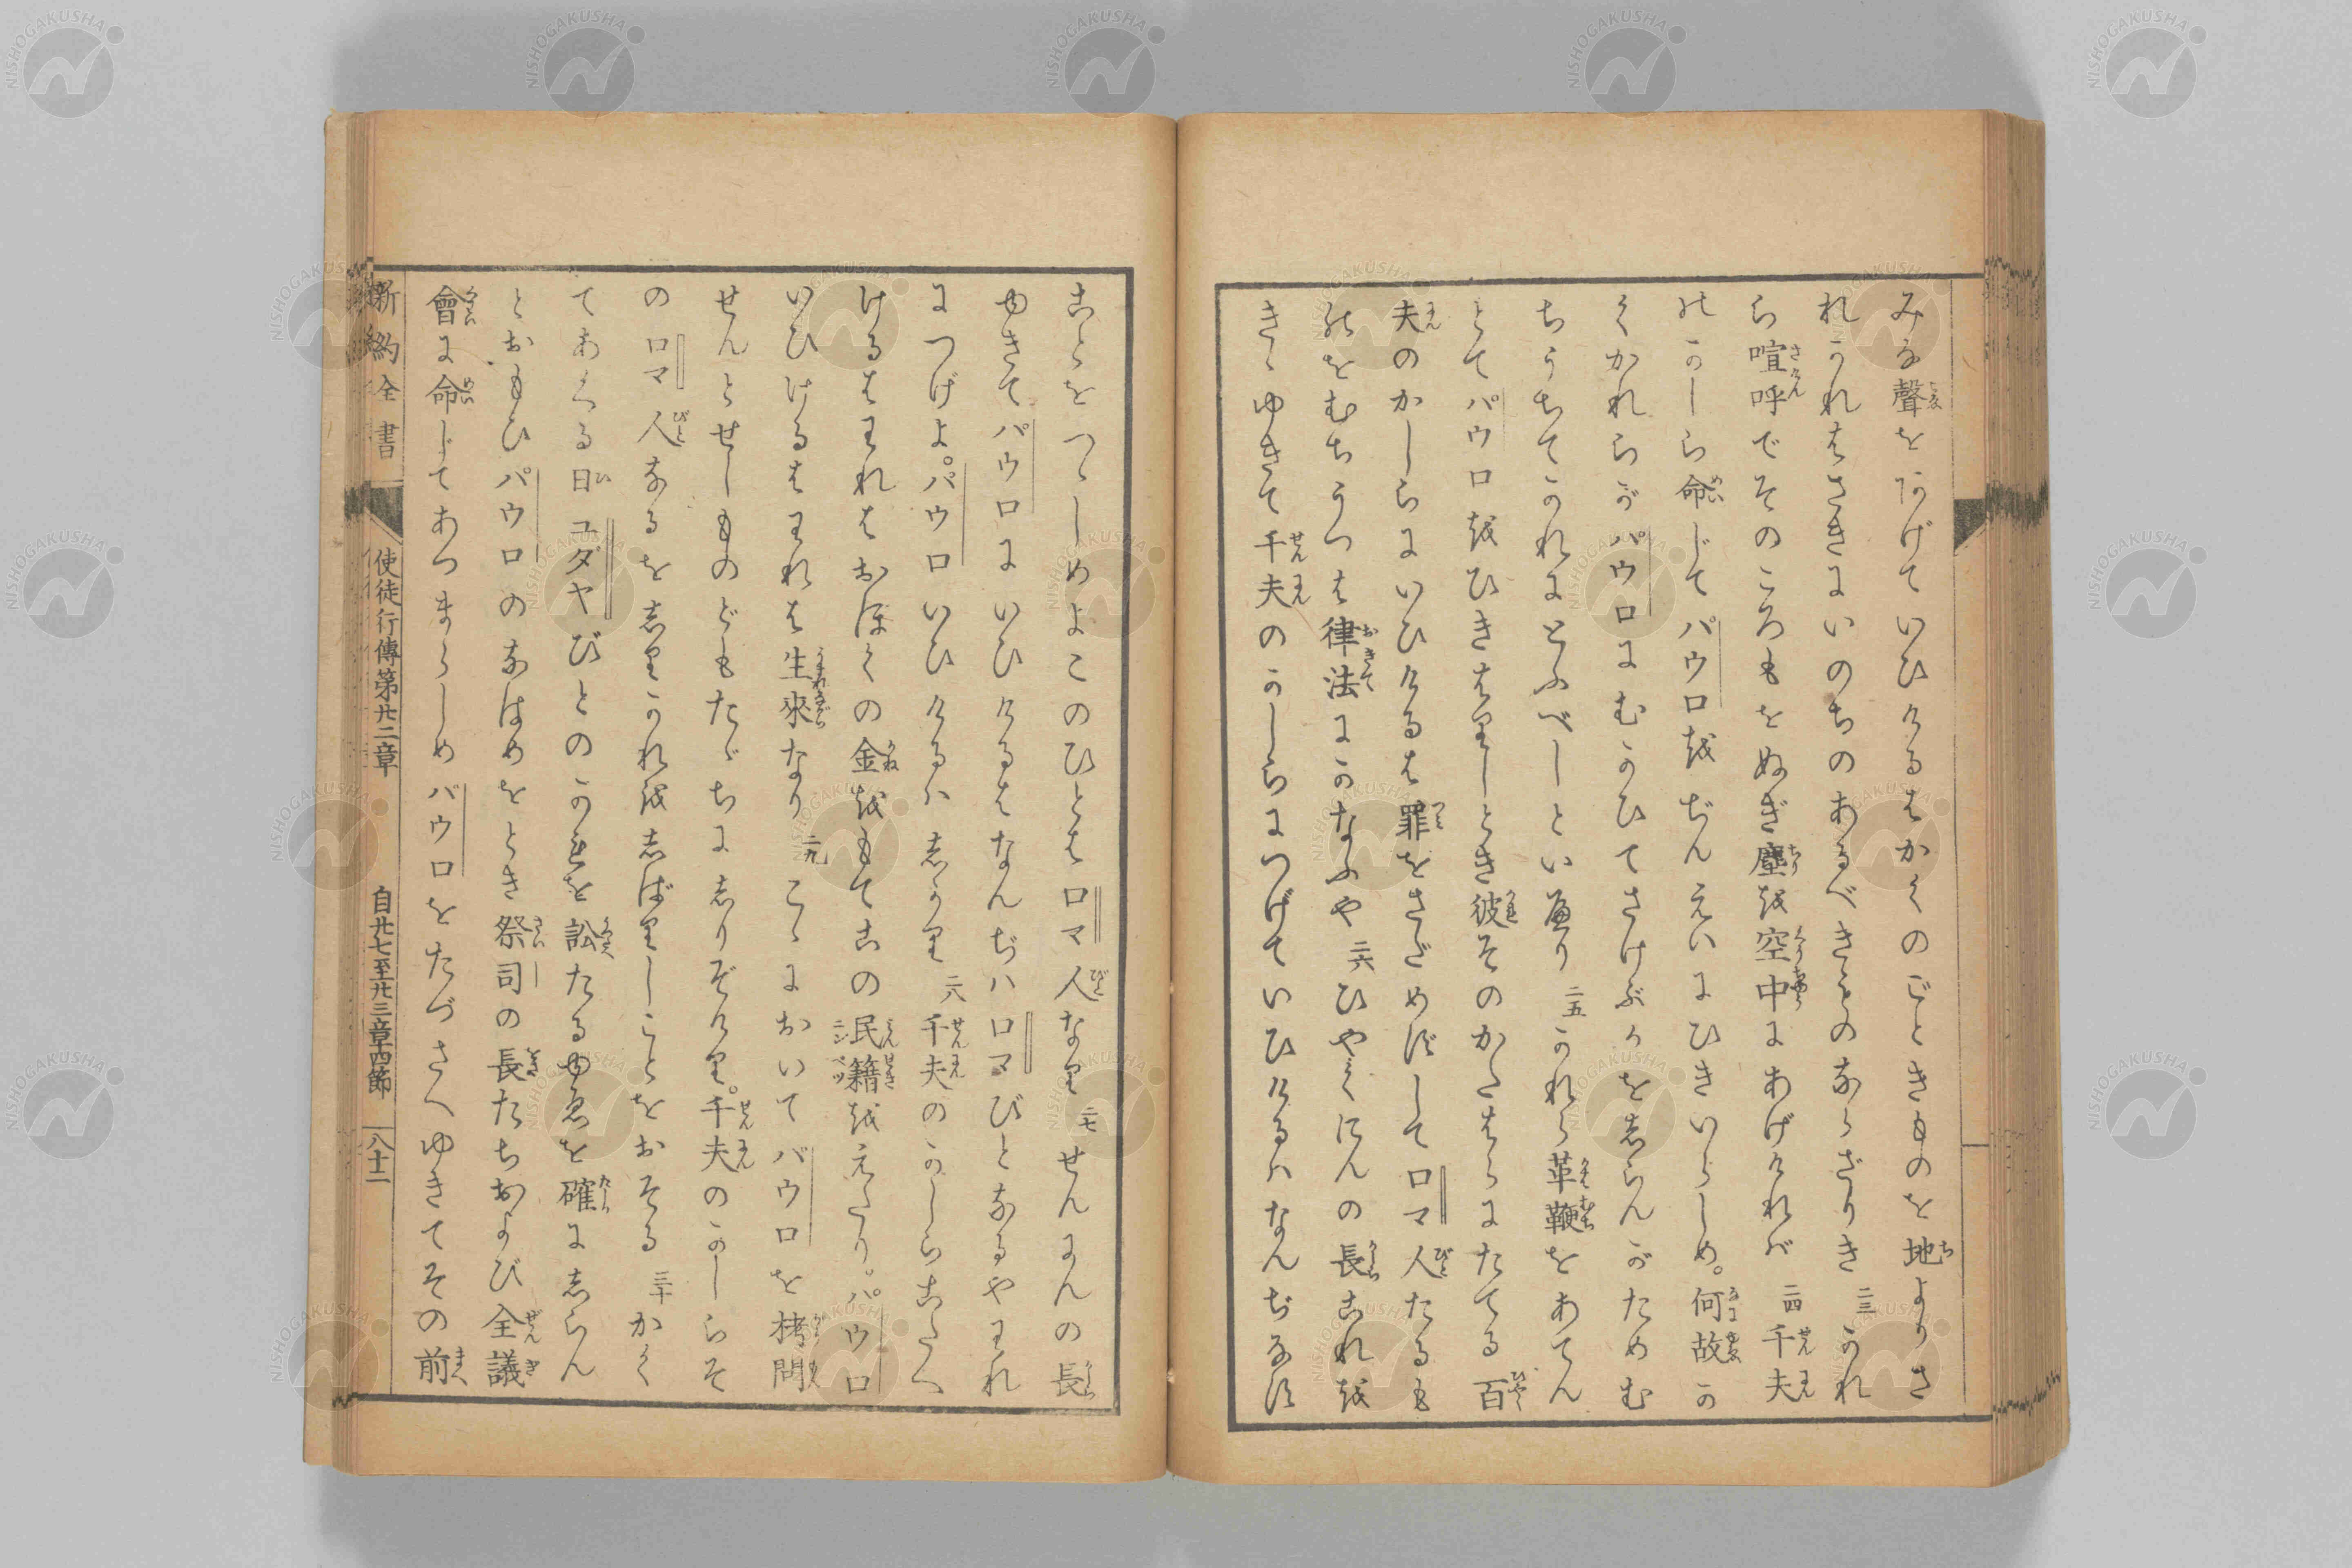 みな聲をあげていひけるはかくのごときものを地よりさ
れかれはさきにいのちのあるべきものならざりき 二三 かれ
ら喧呼でそのころもをぬぎ塵を空中にあげければ 二四 千夫
のかしら命じてパウロをぢんえいにひきいらしめ。何故か
くかれらがパウロにむかひてさけぶかをしらんがためむ
ちうちてかれにとふべしといへり 二五 かれら革鞭をあてん
とてパウロをひきはりしとき彼そのかたはらにたてる百
夫のかしらにいひけるは罪をさだめずしてロマ人たるも
のをむちうつは律法にかなふや 二六 ひやくにんの長これを
きゝゆきて千夫のかしらにつげていひけるハなんぢなす
ことをつゝしめよこのひとはロマ人なり 二七 せんにんの長
ゆきてパウロにいひけるはなんぢハロマびとなるやわれ
につげよ。パウロいひけるハしかり 二八 千夫のかしらこたへ
けるはわれはおほくの金をもてこの民籍をえたり。パウロ
いひけるはわれは生來なり 二九 こゝにおいてパウロを拷問
せんとせしものどもたゞちにしりぞけり。千夫のかしらそ
のロマ人なるをしりかれをしばりしことをおそる 三十 かく
てあくる日ユダヤびとのかれを訟たるゆゑを確にしらん
とおもひパウロのなはめをとき祭司の長たちおよび全議
會に命じてあつまらしめパウロをたづさへゆきてその前
新約全書 使徒行傳第廿二章 自廿七至廿三章四節 八十二
NISHOGAKUSHA